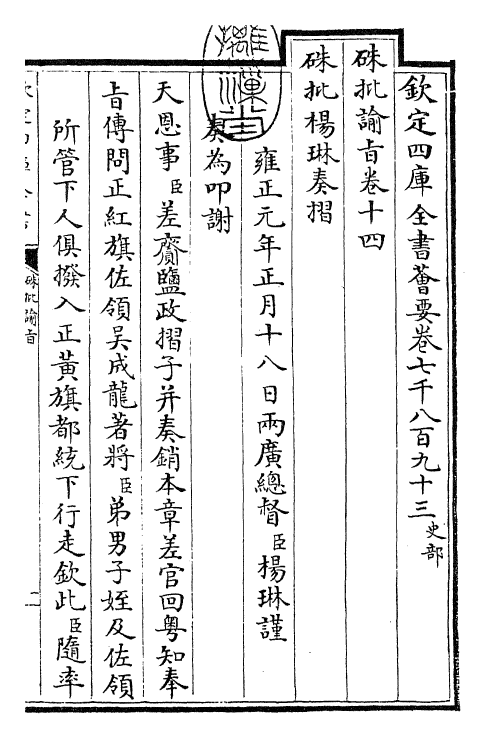 欽定四庫全書薈要卷七千八百九十三史部
硃批諭旨卷十四
硃批楊琳奏摺
雍正元年正月十八日兩廣總督臣楊琳謹
奏為叩謝
天恩事臣差齎鹽政摺子并奏銷本章差官回粵知奉
旨傳問正紅旗佐領吳成龍著將臣弟男子姪及佐領
所管下人俱撥入正黃旗都統下行走欽此臣隨率
硃批諭旨